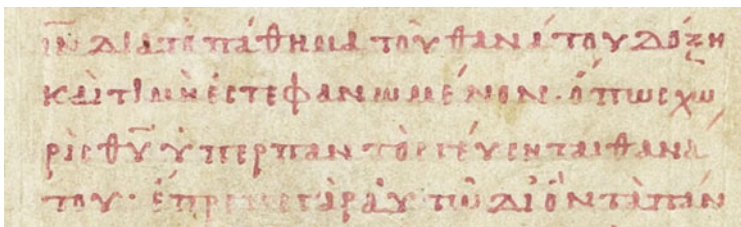 ι̅ν̅ διὰ τὸ πάθημα τοῦ θανάτου δόξη
καὶ τιμῆ ἐστεφανωμένον· ὅπως χω
ρὶς θ̅υ̅ ὑπὲρ παντὸς γεύσηται θανά
του· ἔπρεπεν γὰρ αὐτῶ δι ὃν τὰ πάν